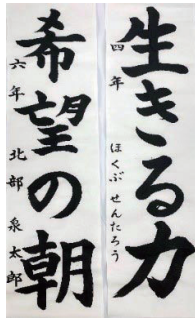 生きる力
四年 ほくぶ せんたろう
希望の朝
六年 北部 泉太郎